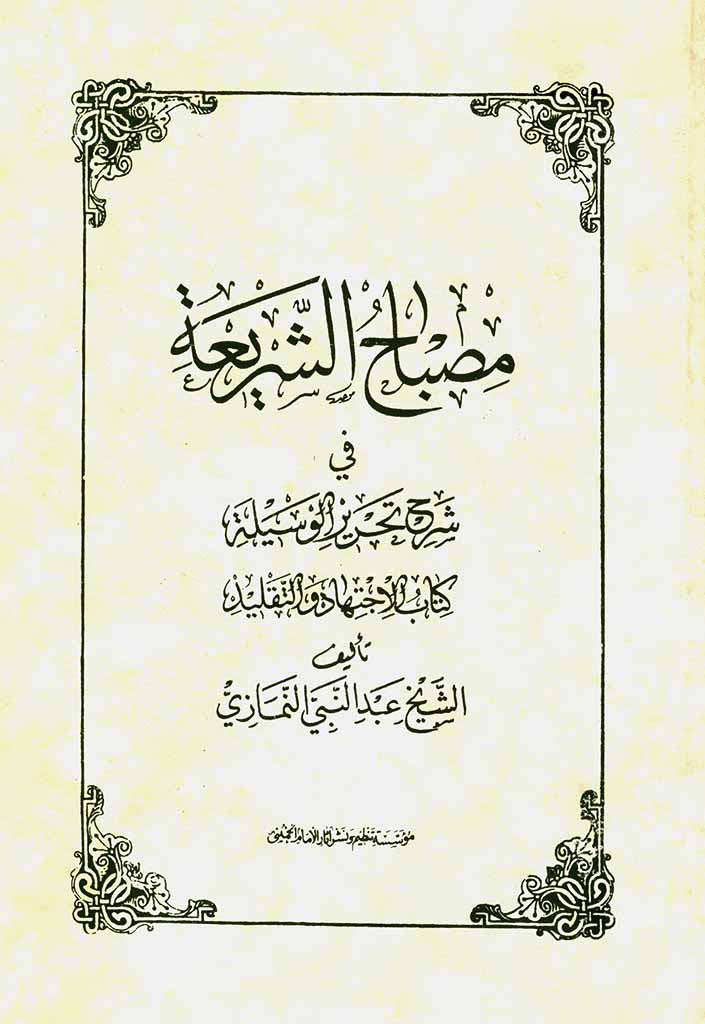 مِصْبَاحُ الشَّرِيعَةِ
في
شَرْحِ تَحْرِيرِ الوَسِيلَةِ
كِتَابُ الاِجْتِهَادِ وَالتَّقْلِيدِ
تأليف
الشَّيْخ عَبْدِ النَّبِيِّ النَّمَازِيِّ
مؤسّسة تنظيم ونشر آثار الإمام الخميني